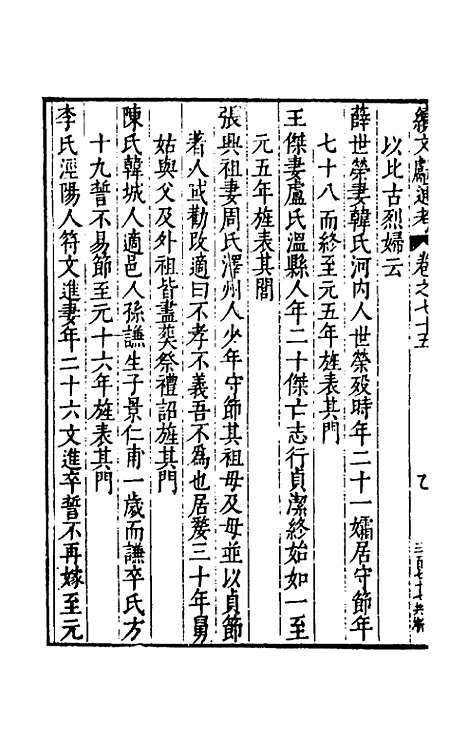 續文獻通考 卷之七十五
以比古烈婦云
薛世榮妻韓氏河内人世榮歿時年二十一孀居守節年
七十八而終至元五年旌表其門
王傑妻盧氏溫縣人年二十傑亡志行貞潔終始如一至
元五年旌表其閭
張興祖妻周氏澤州人少年守節其祖母及母並以貞節
著人或勸改適曰不孝不義吾不為也居嫠三十年舅
姑與父及外祖皆盡葬祭禮詔旌其門
陳氏韓城人適邑人孫謙生子景仁甫一歲而謙卒氏方
十九誓不易節至元十六年旌表其門
李氏涇陽人符文進妻年二十六文進卒誓不再嫁至元